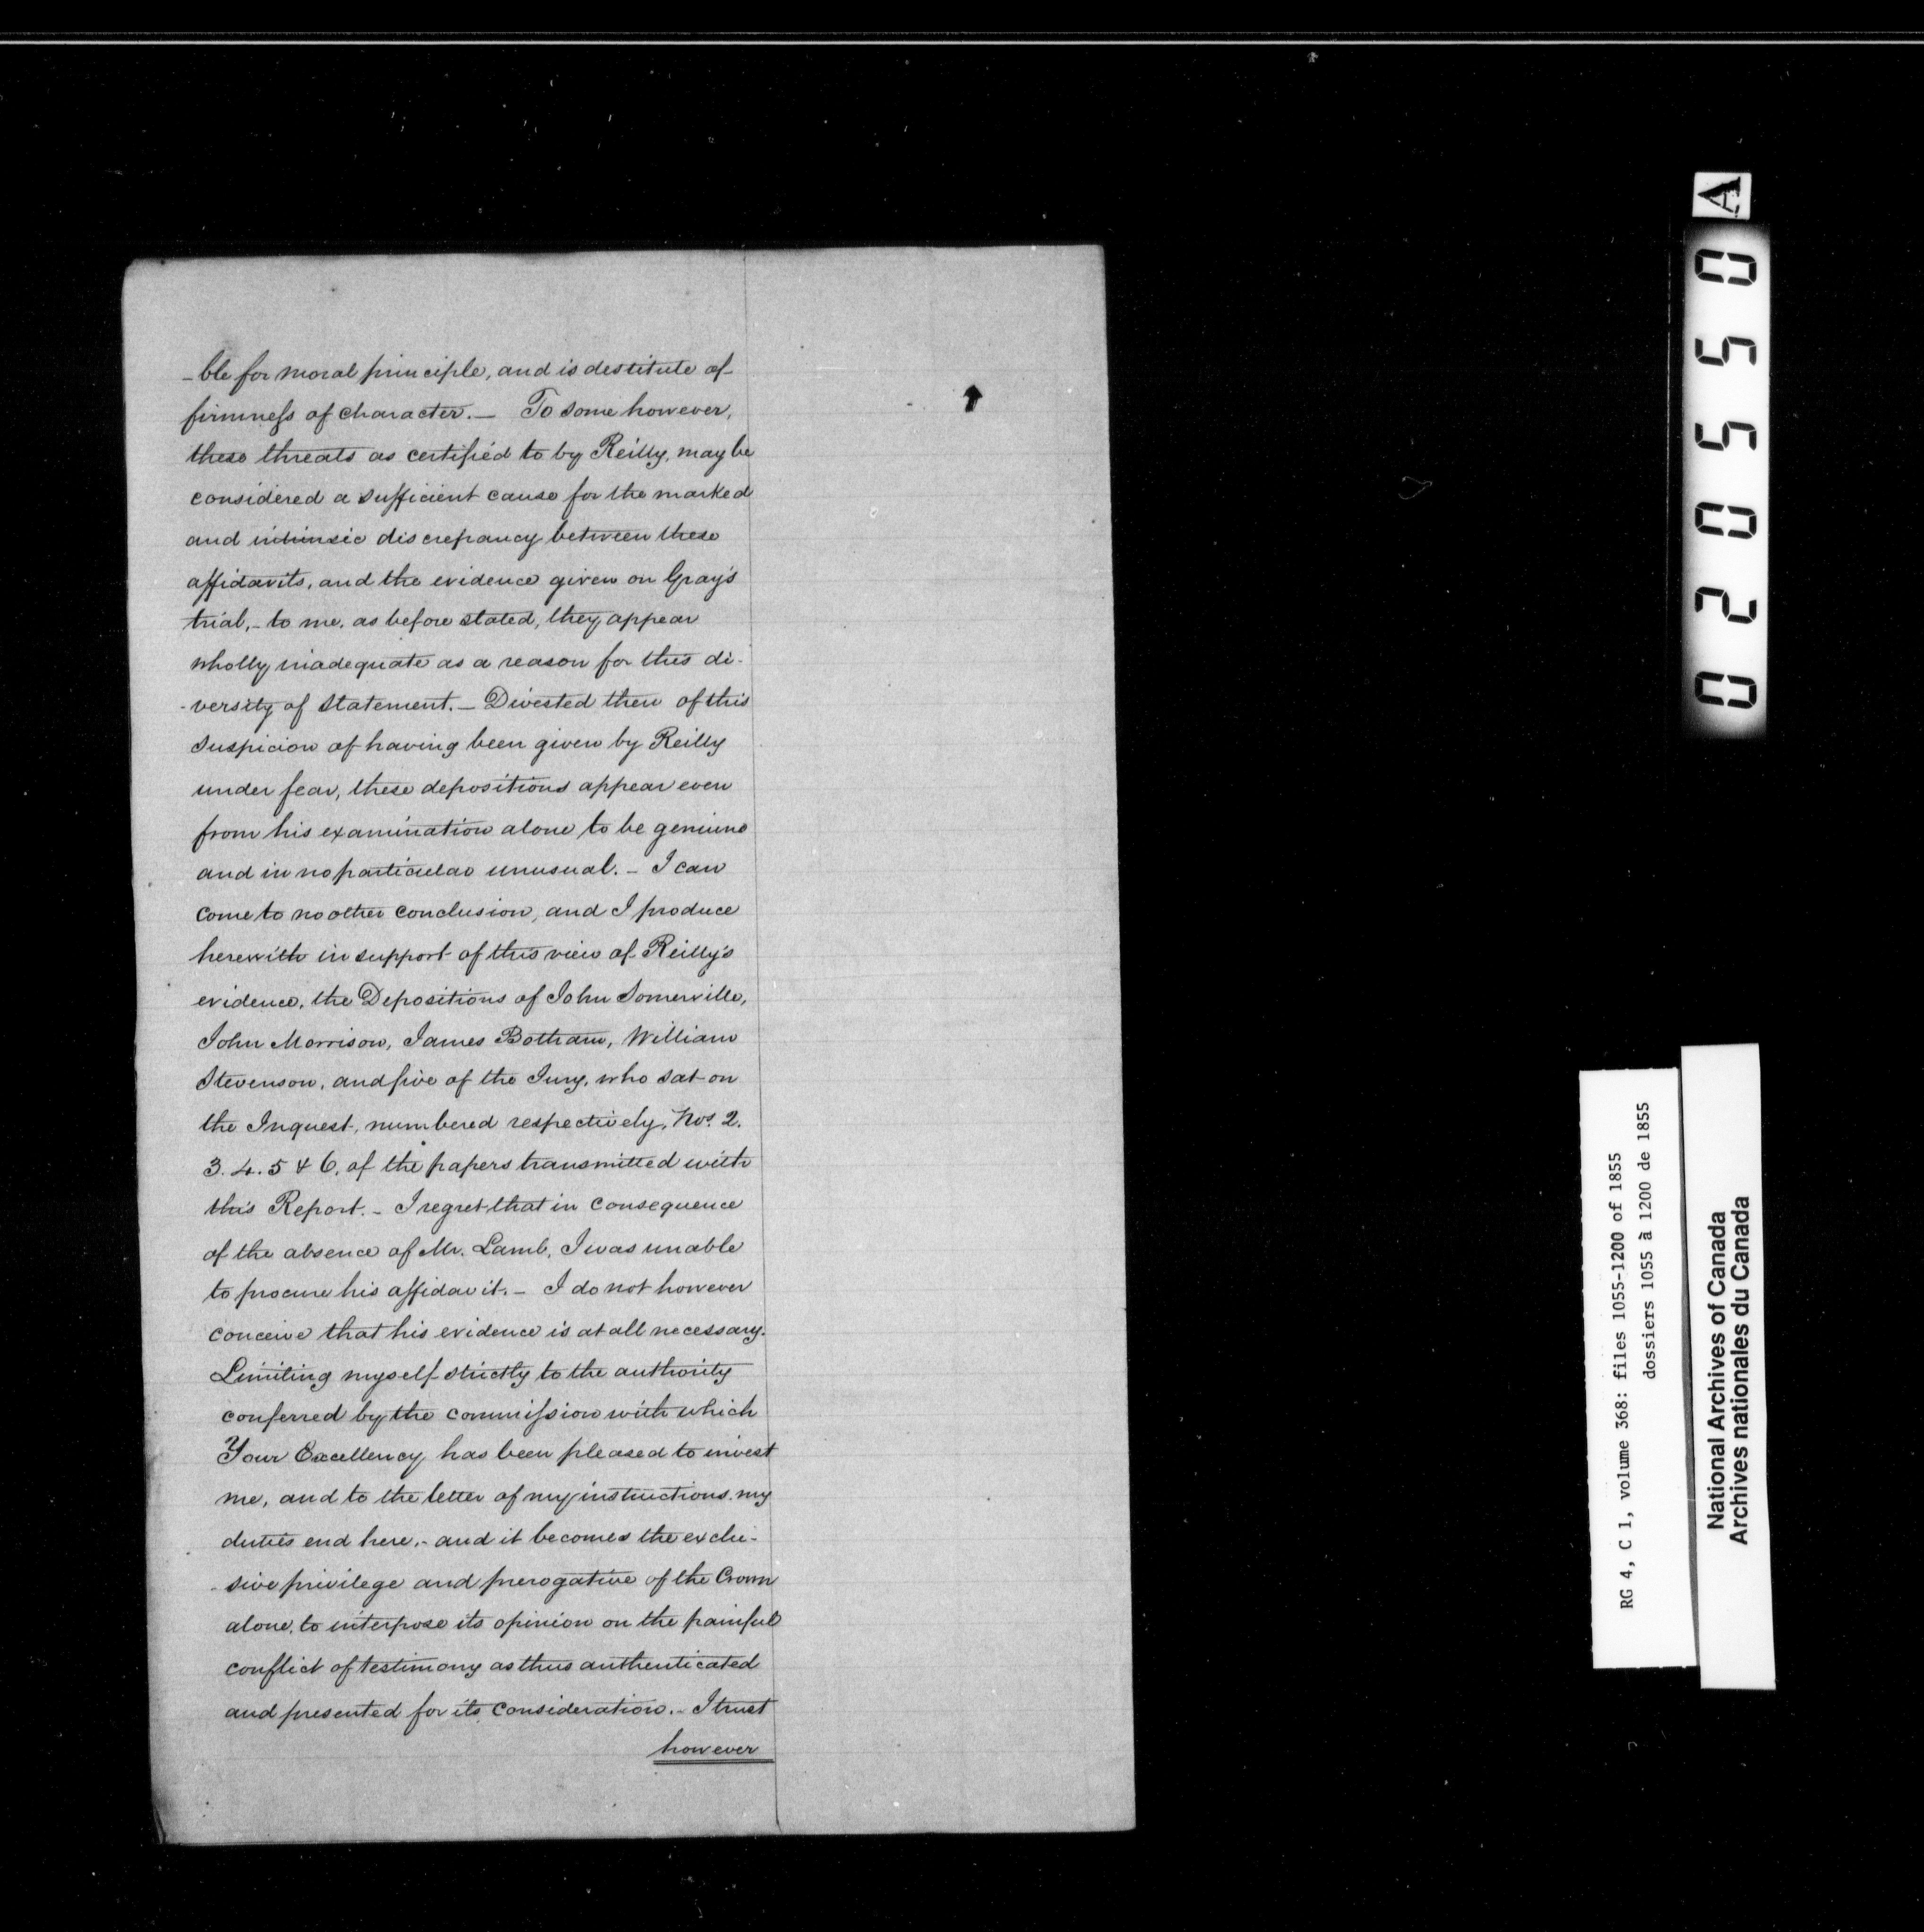 -ble for moral principle, and is destitute of
firmness of character. — To some however,
these threats as certified to by Reilly, may be
considered a sufficient cause for the marked
and intrinsic discrepancy between these
affidavits, and the evidence given on Gray's
trial, - to me, as before stated, they appear
wholly inadequate as a reason for this di-
-versity of statement. — Divested then of this
suspicion of having been given by Reilly
under fear, these depositions appear even
from his examination alone to be genuine
and in no particular unusual. - I can
come to no other conclusion, and I produce
herewith in support of this view of Reilly's
evidence, the Depositions of John Somerville,
John Morrison, James Botham, William
Stevenson, and five of the Jury, who sat on
the Inquest, numbered respectively, Nos. 2.
3. 4. 5 & 6, of the papers transmitted with
this Report. - I regret that in consequence
of the absence of Mr. Lamb, I was unable
to procure his affidavit. - I do not however
conceive that his evidence is at all necessary.
Limiting myself strictly to the authority
conferred by the commission with which
Your Excellency has been pleased to invest
me, and to the letter of my instructions, my
duties end here, - and it becomes the exclu-
-sive privilege and prerogative of the Crown
alone, to interpose its opinion on the painful
conflict of testimony as thus authenticated
and presented for its consideration. - I trust
however
A
020550
RG 4, C 1, volume 368: files 1055-1200 of 1855
dossiers 1055 à 1200 de 1855
National Archives of Canada
Archives nationales du Canada